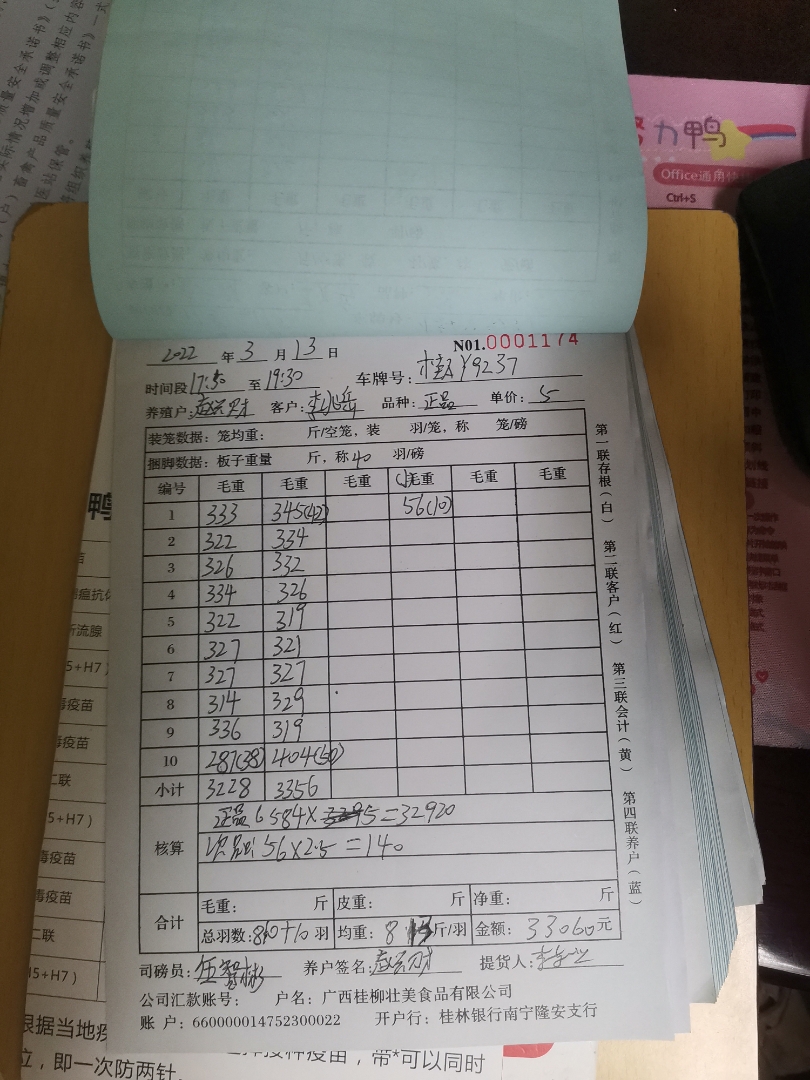 努力鸭
Office通用快
Ctrl+S
2022 年 3 月 13 日 N01.0001174
时间段 17:50 至 19:30 车牌号: 桂A Y9237
养殖户: 客户: 品种: 正品 单价: 5
装笼数据: 笼均重: 斤/空笼, 装 羽/笼, 称 笼/磅
捆脚数据: 板子重量 斤, 称 40 羽/磅
编号 毛重 毛重 毛重 毛重 毛重 毛重
1 333 345(42) 56(10)
2 322 334
3 326 332
4 334 326
5 322 319
6 327 321
7 327 327
8 314 329
9 336 319
10 287(38) 404(50)
小计 3228 3356
核算 正品 6584×5=32920
次品: 56×2.5=140
合计 毛重: 斤 皮重: 斤 净重: 斤
总羽数: 810+10 羽 均重: 8 斤/羽 金额: 33060 元
司磅员: 养户签名: 提货人:
公司汇款账号: 户名: 广西桂柳壮美食品有限公司
账 户: 660000014752300022 开户行: 桂林银行南宁隆安支行
第一联存根(白) 第二联客户(红) 第三联会计(黄) 第四联养户(蓝)
鸭
瘟抗体
流腺
5+H7)
毒疫苗
毒疫苗
二联
5+H7)
毒疫苗
毒疫苗
二联
5+H7)
根据当地疫
种疫苗, 带*可以同时
位, 即一次防两针.